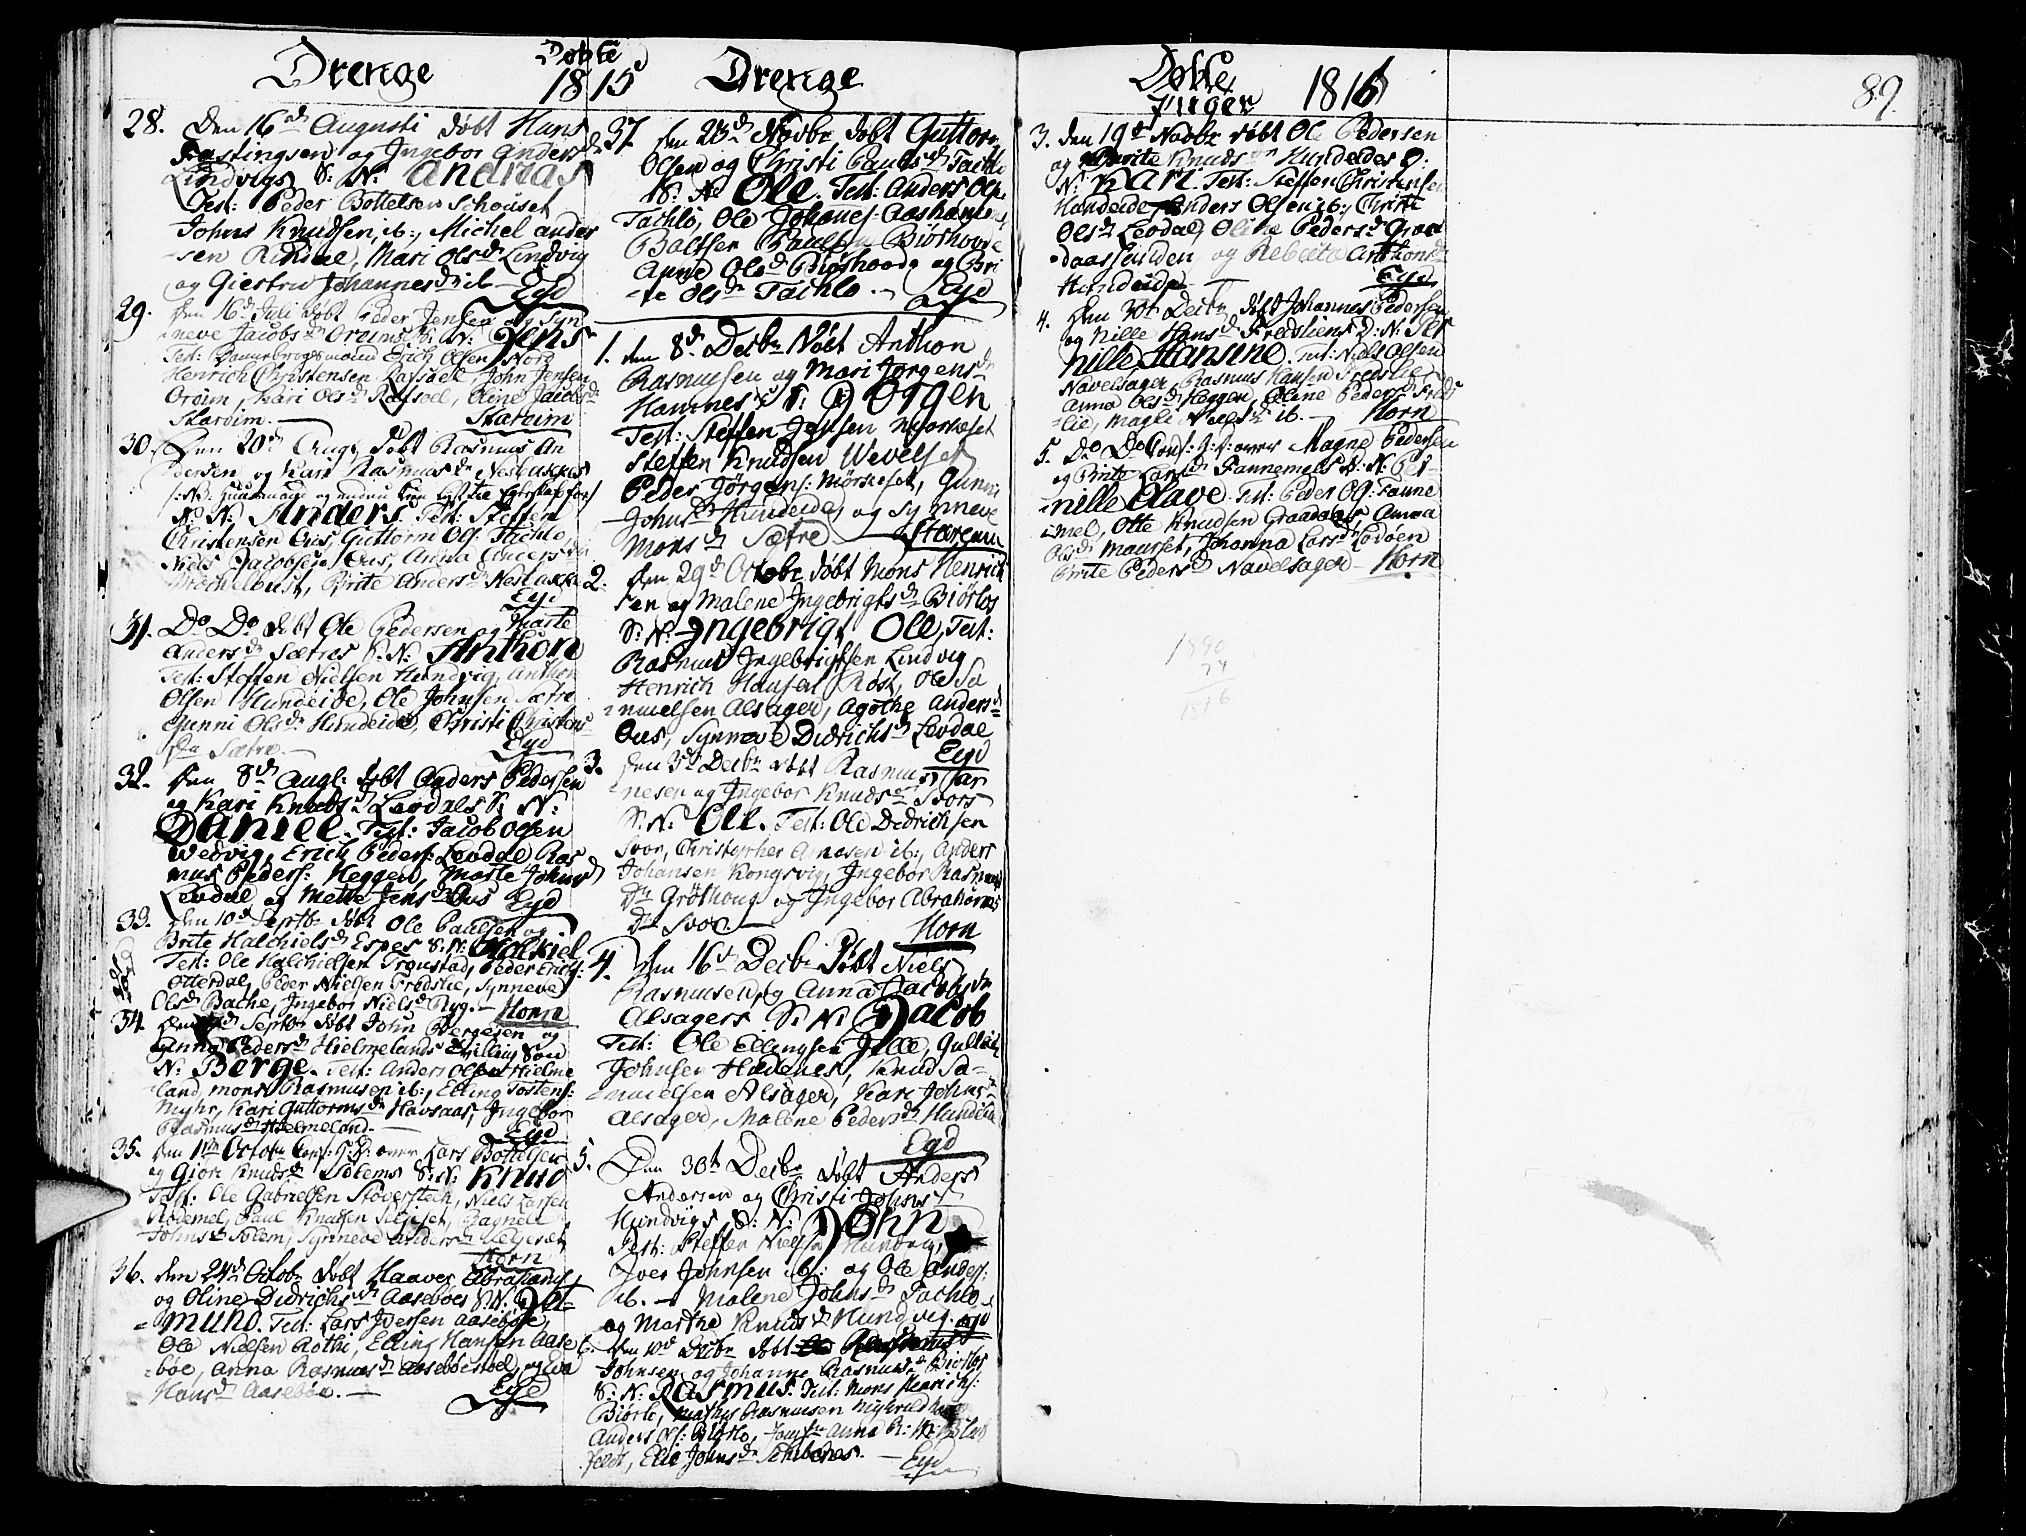 Døbte
Drenge 1815 Drenge
28. Den 16d Augusti døbt Hans
Fastingsen og Ingebor Andersd
Lindvigs S: N: Andreas
Test: Peder Bottelsen Schouset
Johns Knudsen, ib:, Michel Ander
-sen Rindal, Mari Olsd Lindvig
og Giestru Johannesd ib - Egd
29. Den 16d Juli døbt Peder Jensen og Syn
neve Jacobsd Oreims S: N: Jens
Test: Dannebrogsmand Erich Olsen Nore
Henrich Christensen Rafsdel, John Jensen
Oreim, Mari Olsd Rafsdel, Ane Jacobsd
Stareim. - Stareim
30. Den 20d Aug: døbt Rasmus An
dersen og Kari Rasmusdr Neslackes
N: N: Anders. Test: Steffen
Christensen Ous, Guttorm Ols: Tachlo,
Niels Jacobsen Ous, Anna Andersdr
Mochelbust, Brite Andersdr Neslackes
Egd
31. Do Do døbt Ole Pedersen og Marte
Andersd Sætres S: N: Anthon
Test: Steffen Nielsen Hundvig, Anthon
Olsen Hundeide, Ole Johnsen Sætre
Gunni Olsdr Hundeide, Christi Christens
Dr Sætre. - Egd
32. Den 8d Augl: døbt Anders Pedersen
og Kari Knudsd Løvdals S: N:
Daniel. Test: Jacob Olsen
Wedvig, Erich Peders: Levdal Ras
mus Peders: Heggen, Marte Johnsd
Levdal og Mette Jensd Ous Egd
33. Den 10d Septbr døbt Ole Paulsen og
Brite Halchielsd Espes S: N: Halkiel
Test: Ole Halchielsen Tronstad, Peder Erichs:
Otterdal, Peder Nielsen Fredslie, Synneve
Olsd Bache, Ingebor Nielsd Ryg. - Horn
34. Den d Septbr døbt John Bergesen og
Anna Pedersd Hielmelands Tvilling Søn
N: Berge. Test: Anders Olsen Hielme
land, Mons Rasmusen ib:, Elling Tostens:
Myhr, Kari Guttormsdr Havsaas, Ingebor
Rasmusd Hielmeland. - Egd
35. Den 1ste Octobr Conf: H: D: over Lars Bottelsen
og Giøri Knudsdr Solems S: N: Knud
Test: Ole Gabrielsen Støversteen, Niels Larsen
Rødemel, Paul Knudsen Seljeset, Ragnele
Johnsd Solem, Synneve Andersd Seljeset
Horn
36. Den 24d Octobr døbt Haaver Abrahams
og Oline Didrichsd Aaseboes S: N: Jet-
-mund. Test: Lars Iversen Aasebøe,
Ole Nielsen Rothi, Elling Hansen Aase
bøe, Anna Rasmusd Aasebøestøel, og Eva
Hansd Aasebøe. - Egd
37. Den 23d Novbr døbt Guttorm
Olsen og Christi Paulsd Tachlo
S: N: Ole. Test: Anders Ols:
Tachlo, Ole Johanes: Aashamn
Baltser Paulsen Biørhovde
Anne Olsd Biørhovde og Bri
-te Olsdr Tachlo. - Egd
1. Den 8d Decbr døbt Anthon
Rasmusen og Mari Jørgensdr
Hamnes S: N: Jørgen
Test: Steffen Jensen Mørkeset
Steffen Knudsen Wevelset
Peder Jørgens: Mørkeset, Gunni
Johnsdr Hundeide, og Synneve
Monsdr Sætre. - Stareim
2. Den 29d Octobr døbt Mons Henrich
sen og Malene Ingebrigtsd Biørlos
S: N: Ingebrigt Ole, Test:
Rasmus Ingebrigtsen Lindvig
Henrich Hansen Røst, Ole Sa
-muelsen Alsager, Agothe Andersd
Ous, Synneve Didrichsd Levdal
Egd
3. Den 3d Decbr døbt Rasmus Jør
nesen og Ingebor Knudsdr Svors
S: N: Ole. Test: Ole Dedrichsen
Svor, Christopher Arnesen ib:, Anders
Johansen Kongsvig, Ingebor Rasmus
Dr Grøthoug og Ingebor Abrahams
Dr Svor. - Horn
4. Den 16d Decbr døbt Niels
Rasmusen og Anna Jacobsdr
Alsagers S: N: Jacob
Test: Ole Ellingsen Fille, Gullich
Johnsen Hødenes, Knud Sa-
-muelsen Alsager, Kari Johnsdr
Alsager, Malene Pedersdr Hundeide
Egd
5. Den 30t Decbr døbt Anders
Andersen og Christi Johnsd
Hundvigs S: N: John
Test: Steffen Nielsen Hundvig,
Iver Johnsen ib: og Ole Anders:
ib. - Malene Johnsd Tachlo
og Marthe Knudsd Hundvig. Egd
6. Den 10d Decbr døbt Rasmus
Johnsen og Johanne Rasmusdr Biørlos
S: N: Rasmus. Test: Mons Henrichs:
Biørlo, Mathias Rasmusen Myklebust
Anders Ols: Biørlo, Jomfru Anna B: H:
feldt, Elie Johnsdr Schibenes. - Egd
Døbte
Piger 1816
89.
3. Den 19d Novbr døbt Ole Pedersen
og Brite Knudsdr Hundeides D:
N: Kari. Test: Steffen Christensen
Hundeide, Anders Olsen ib:, Christi
Olsdr Levdal, Oline Pedersd Graa
daasheulden og Rebecta Anthonsdr
Hundeide - Egd
4. Den 30t Decbr døbt Johannes Pedersen
og Nille Hansd Fredsliens D: N: Per
nille Hansine. Test: Niels Olsen
Navelsager, Rasmus Hansen Fredslie
Anna Olsd Heggen, Oline Pedersd Freds
-lie, Magli Nielsdr ib. - Horn
5. Do Do Conf: H: D: over Magne Pedersen
og Brite Larsdr Fannemels D: N: Per-
-nille Olave. Test: Peder Ols: Fanne
-mel, Otte Knudsen Graadaas, Anna
Olsdr Maurset, Johanna Larsd Lødøen
Brite Pedersd Navelsager - Horn
1890
74
1816